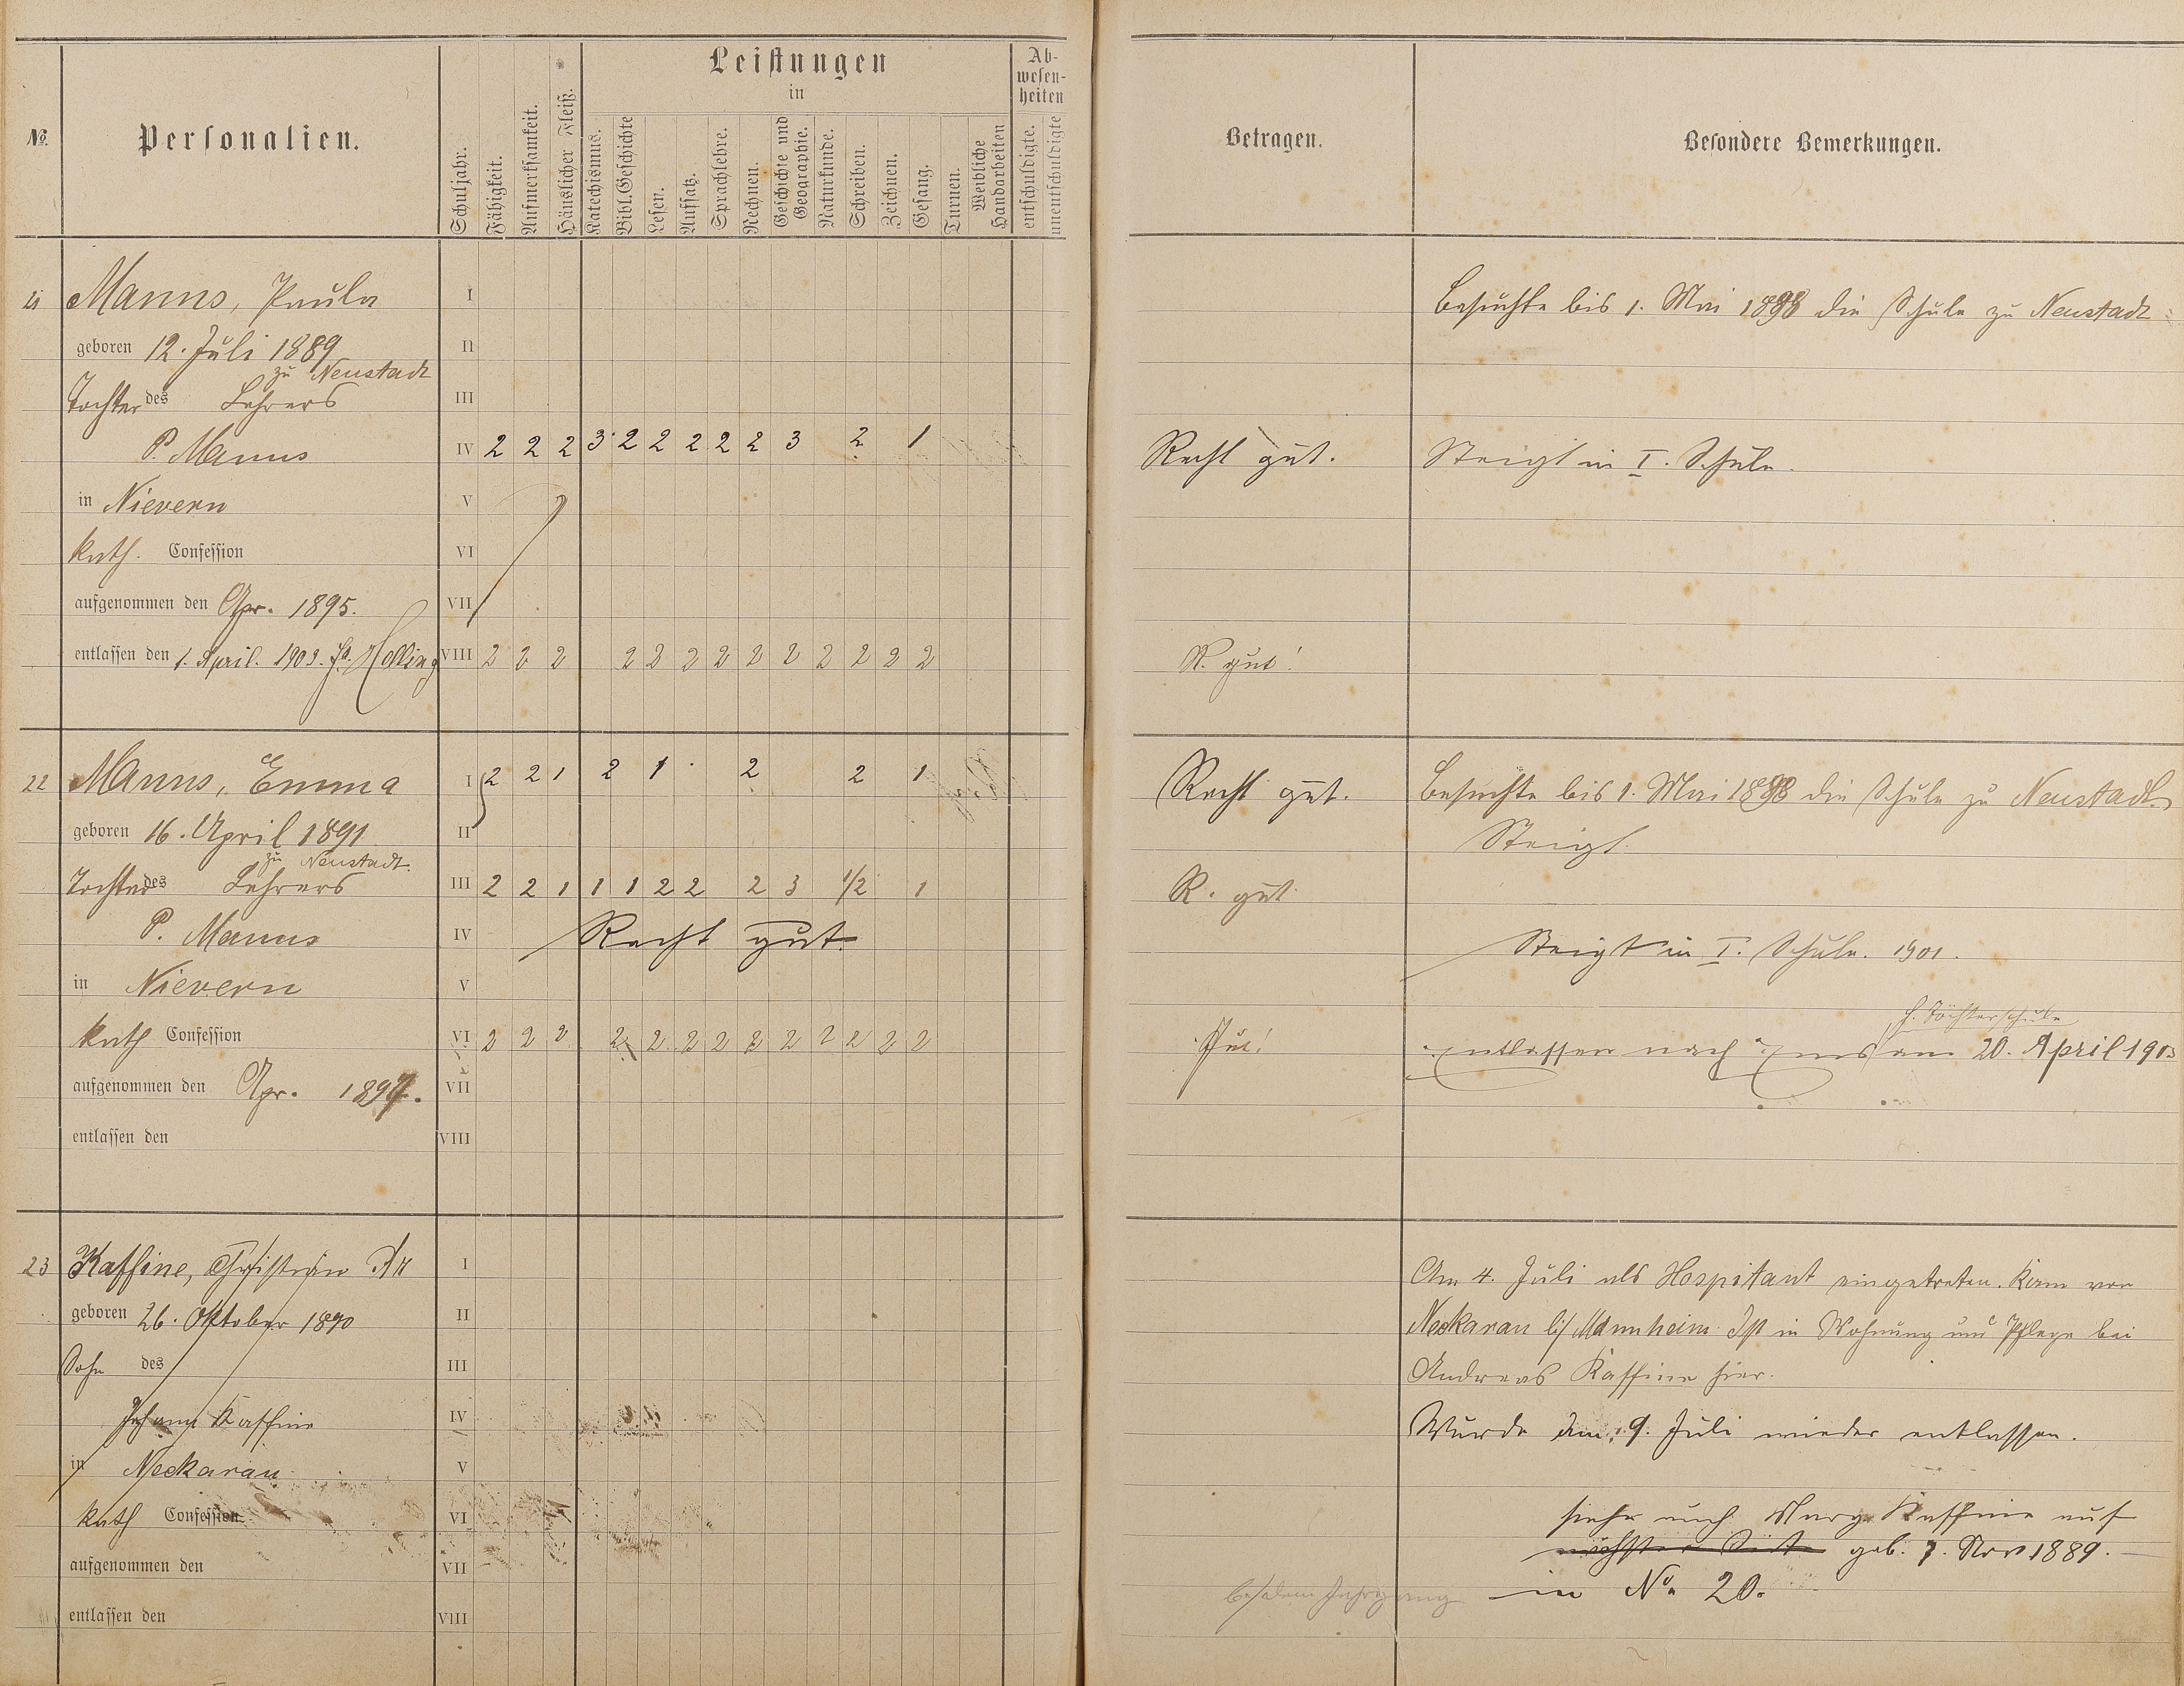 No.
Personalien.
Schuljahr.
Fähigkeit.
Aufmerksamkeit.
Häuslicher Fleiß.
Leistungen
in
Katechismus.
Bibl. Geschichte
Lesen.
Aufsatz.
Sprachlehre.
Rechnen.
Geschichte und Geographie.
Naturkunde.
Schreiben.
Zeichnen.
Gesang.
Turnen.
Weibliche Handarbeiten
Ab-
wesen-
heiten
entschuldigte.
unentschuldigte
Betragen.
Besondere Bemerkungen.
21 Manns, Paula I Besuchte bis 1. Mai 1898 die Schule zu Neustadt
geboren 12. Juli 1889 II
zu Neustadt
Tochter des Lehrers III
P. Manns IV 2 2 2 3 2 2 2 2 2 3 2 1 Recht gut. Steigt in I. Schule.
in Nievern V
kath. Confession VI
aufgenommen den Apr. 1895. VII
entlassen den 1. April. 1903. VIII 2 2 2 2 2 2 2 2 2 2 2 2 2 R. gut!
22 Manns, Emma I 2 2 1 2 1 2 2 1 Recht gut. Besuchte bis 1. Mai 1898 die Schule zu Neustadt
geboren 16. April 1891 II Steigt.
zu Neustadt.
Tochter des Lehrers III 2 2 1 1 1 2 2 2 3 1/2 1 R. gut
P. Manns IV Recht gut. Steigt in I. Schule. 1901.
in Nievern V
h. Töchterschule
kath Confession VI 2 2 2 2 2 2 2 2 2 2 2 2 2 Gut! Entlassen nach Ems am 20. April 1903
aufgenommen den Apr. 1897. VII
entlassen den VIII
23 Kaffine, Christian I Am 4. Juli als Hospitant eingetreten. Kam von
geboren 26. Oktober 1890 II Neckarau b/ Mannheim. Ist in Wohnung und Pflege bei
Sohn des III Andreas Kaffine hier.
Johann Kaffine IV Wurde den 9. Juli wieder entlassen.
in Neckarau V
kath Confession VI siehe auch Marg. Kaffine auf
aufgenommen den VII nächster Seite geb. 7. Nov 1889.
in No. 20.
entlassen den VIII